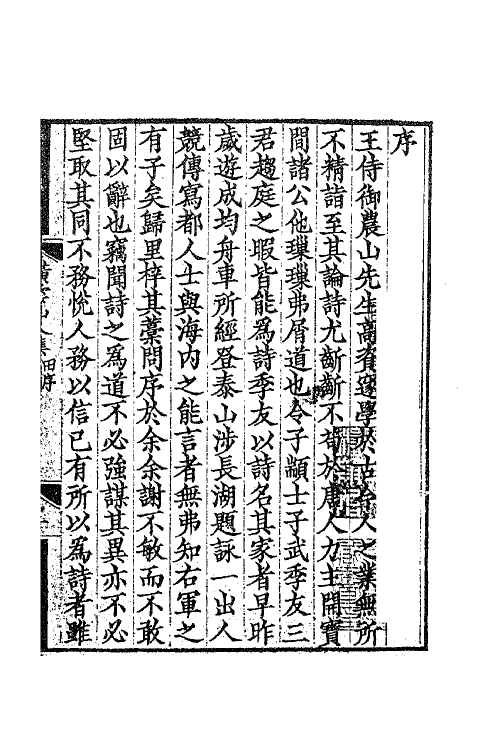 序
王侍御農山先生高資邃學於古今人之業無所
不精詣至其論詩尤斷斷不苟於唐人力主開寶
間諸公他璅璅弗屑道也令子顓士子武季友三
君趨庭之暇皆能爲詩季友以詩名其家者早昨
歲遊成均舟車所經登泰山涉長湖題詠一出人
競傳寫都人士與海内之能言者無弗知右軍之
有子矣歸里梓其藁問序於余余謝不敏而不敢
固以辭也竊聞詩之爲道不必強謀其異亦不必
堅取其同不務悅人務以信已有所以爲詩者雖